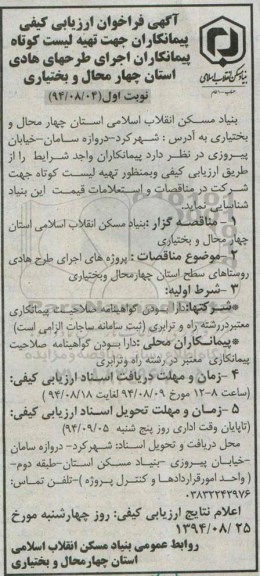 آگهی فراخوان ارزیابی کیفی
پیمانکاران جهت تهیه لیست کوتاه
پیمانکاران اجرای طرحهای هادی
استان چهار محال و بختیاری
نوبت اول(۹۴/۰۸/۰۴)
بنیاد مسکن انقلاب اسلامی
بنیاد مسکن انقلاب اسلامی استان چهار محال و
بختیاری به آدرس : شهرکرد-دروازه سامان-خیابان
پیروزی در نظر دارد پیمانکاران واجد شرایط را از
طریق ارزیابی کیفی وبمنظور تهیه لیست کوتاه جهت
شرکت در مناقصات و استعلامات قیمت این بنیاد
شناسایی نماید.
۱ – مناقصه گزار :بنیاد مسکن انقلاب اسلامی استان
چهارمحال و بختیاری
۲ –موضوع مناقصات : پروژه های اجرای طرح هادی
روستاهای سطح استان چهارمحال وبختیاری
۳ –شرط اولیه:
*شرکتها:دارا بودن گواهینامه صلاحیت پیمانکاری
معتبردررشته راه و ترابری (ثبت سامانه ساجات الزامی است)
*پیمانکاران محلی :دارا بودن گواهینامه صلاحیت
پیمانکاری معتبر در رشته راه وترابری
۴ –زمان و مهلت دریافت اسناد ارزیابی کیفی:
(ساعت ۸–۱۲ مورخ ۹۴/۰۸/۰۹ لغایت ۹۴/۰۸/۱۸)
۵ –زمان و مهلت تحویل اسناد ارزیابی کیفی:
(تاپایان وقت اداری روز پنج شنبه ۹۴/۰۹/۰۵)
محل دریافت و تحویل اسناد: شهرکرد– دروازه سامان
–خیابان پیروزی –بنیاد مسکن استان–طبقه دوم–
( واحد امورقراردادها و کنترل پروژه )–تلفن تماس:
۰۳۸۳۲۲۴۲۹۷۶
اعلام نتایج ارزیابی کیفی: روز چهارشنبه مورخ
۱۳۹۴/۰۸/۲۵
روابط عمومی بنیاد مسکن انقلاب اسلامی
استان چهارمحال و بختیاری